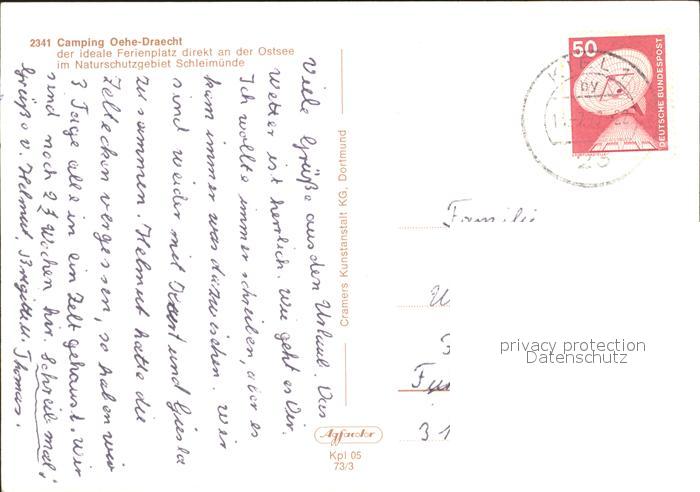 2341 Camping Oehe-Draecht
der ideale Ferienplatz direkt an der Ostsee
im Naturschutzgebiet Schleimünde
Viele Grüße aus den Urlaub. Das
Wetter ist herrlich. Wie geht es Dir.
Ich wollte immer schreiben, aber es
kam immer was dazwischen. Wir
sind wieder mit und Gisela
zusammen. Helmut hatte die
Zelt vergessen, so haben wir
3 Tage alle in ein Zelt gehaust. Wir
sind noch 2½ Wochen hir. Schreib mal!
Grüße v. Helmut, Brigitte u. Thomas.
Cramers Kunstanstalt KG, Dortmund
Agfacolor
Kpl 05
73/3
50
DEUTSCHE BUNDESPOST
KIEL
by
23
Familie
31
privacy protection
Datenschutz